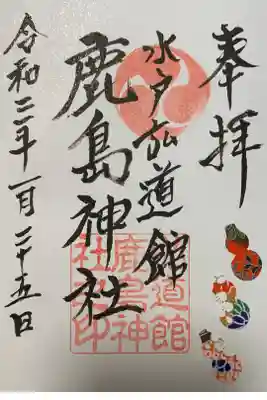 奉拝
水戸弘道館
鹿島神社
令和二年一月二十五日
弘道館
鹿島神
社之印